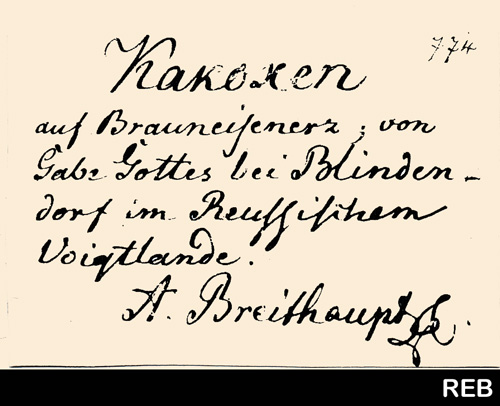 774
Kakoxen
auf Brauneisenerz; von
Gabe Gottes bei Blinden-
dorf im Reussischem
Voigtlande.
A. Breithaupt
REB